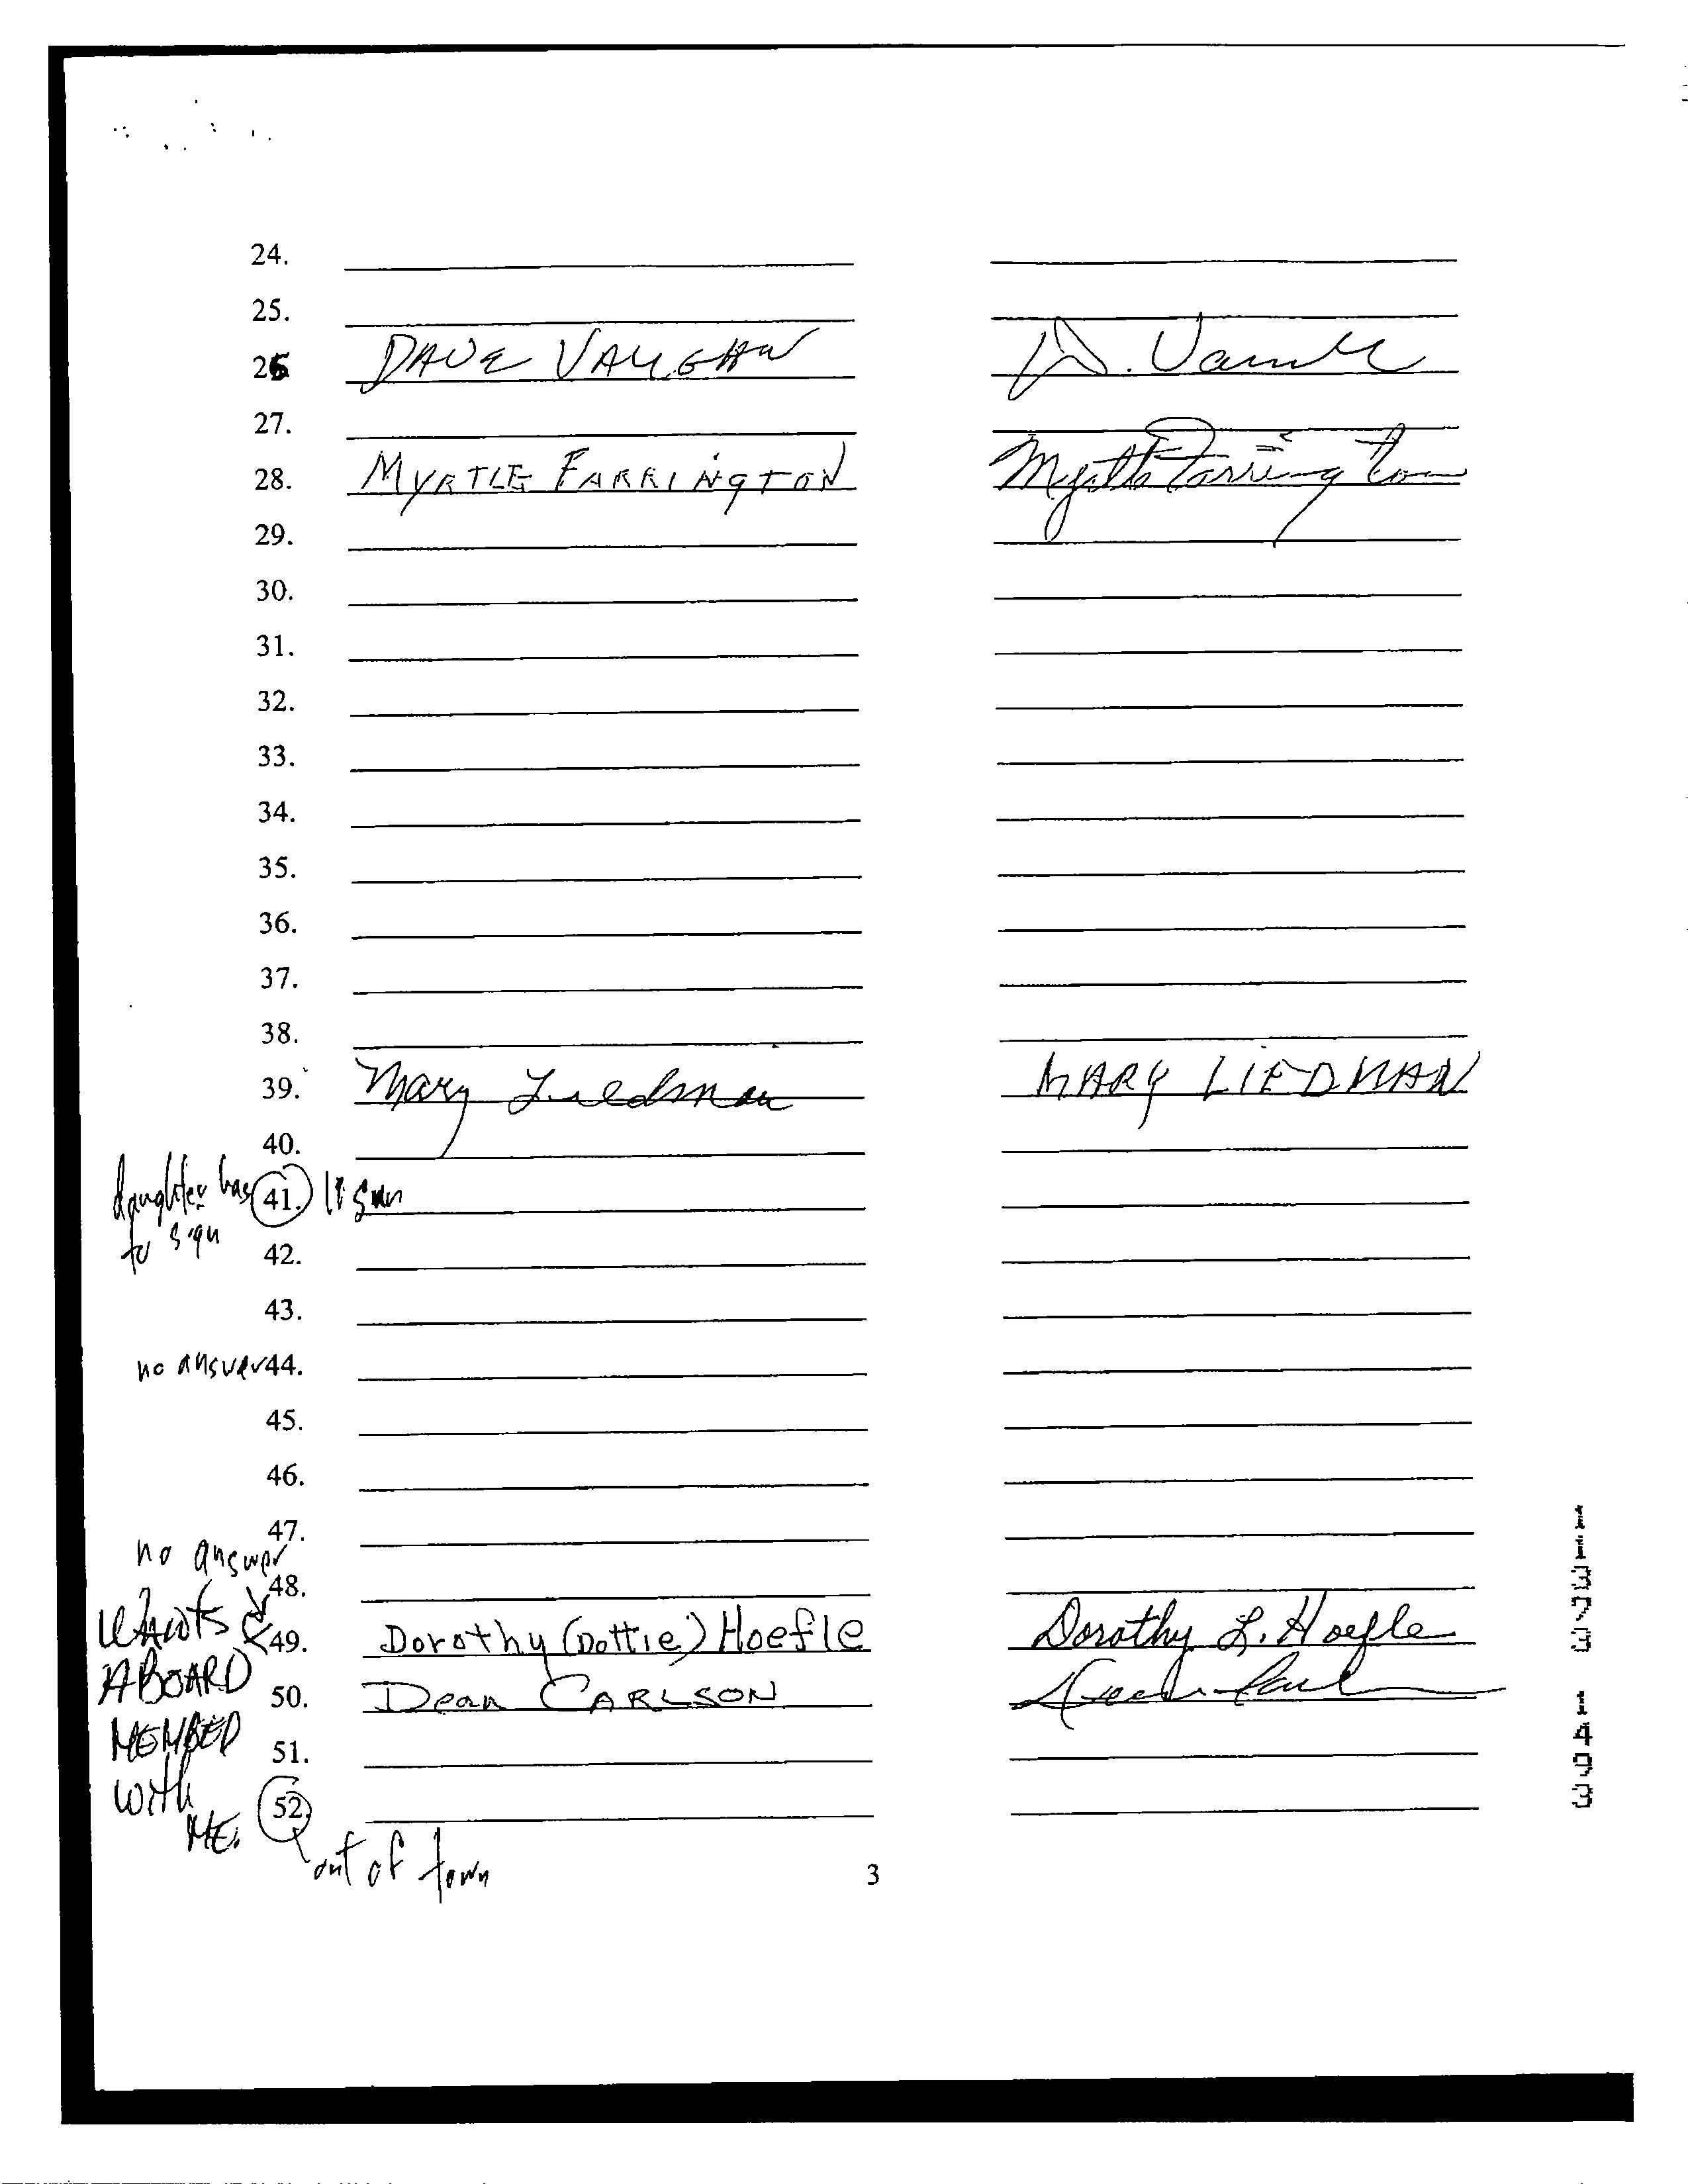 24.
25.
26 DAVE VAUGHAN D. Vaughn
27.
28. MYRTLE FARRINGTON Myrtle Farrington
29.
30.
31.
32.
33.
34.
35.
36.
37.
38.
39. Mary Liedman MARY LIEDMAN
40.
daughter has 41.
to sign
42.
43.
no answer 44.
45.
46.
47.
no answer
48.
WANTS 49. Dorothy (Dottie) Hoefle Dorothy L. Hoefle
A BOARD 50. Dean CARLSON
MEMBED 51.
with 52.
ME.
out of town
3